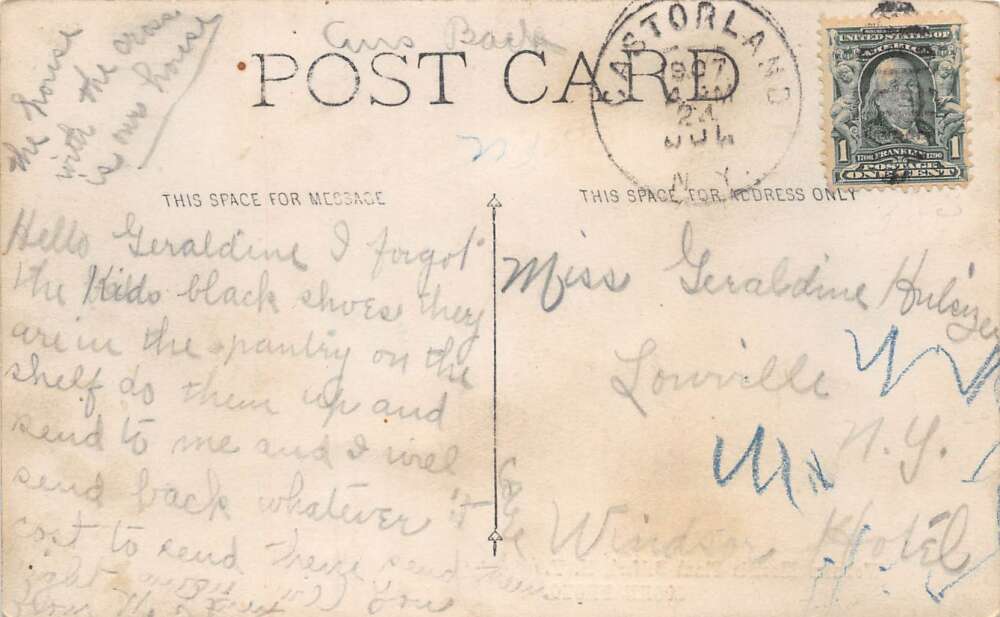 the house
with the cross
is ours house
Ans Back
POST CARD
CASTORLAND
1907
24
N.Y.
UNITED STATES OF
AMERICA
1
1706 FRANKLIN 1790
1
POSTAGE
ONE CENT
THIS SPACE FOR MESSAGE
THIS SPACE FOR ADDRESS ONLY
Hello Geraldine I forgot
the Kids black shoes they
are in the pantry on the
shelf do them up and
send to me and I will
send back whatever it
cost to send these send them
right
Miss Geraldine Hulsizer
Lowville
N.Y.
Windsor Hotel